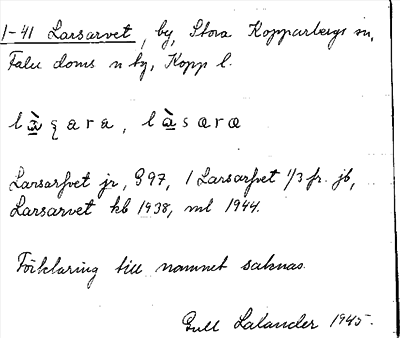 1-41 Larsarvet, by, Stora Kopparbergs sn,
Falu doms n by, Kopp l.
Larsarfvet jr, § 97, 1 Larsarfvet 1/3 fr. jb,
Larsarvet kb 1938, ml 1944.
Förklaring till namnet saknas.
Gull Lalander 1945.